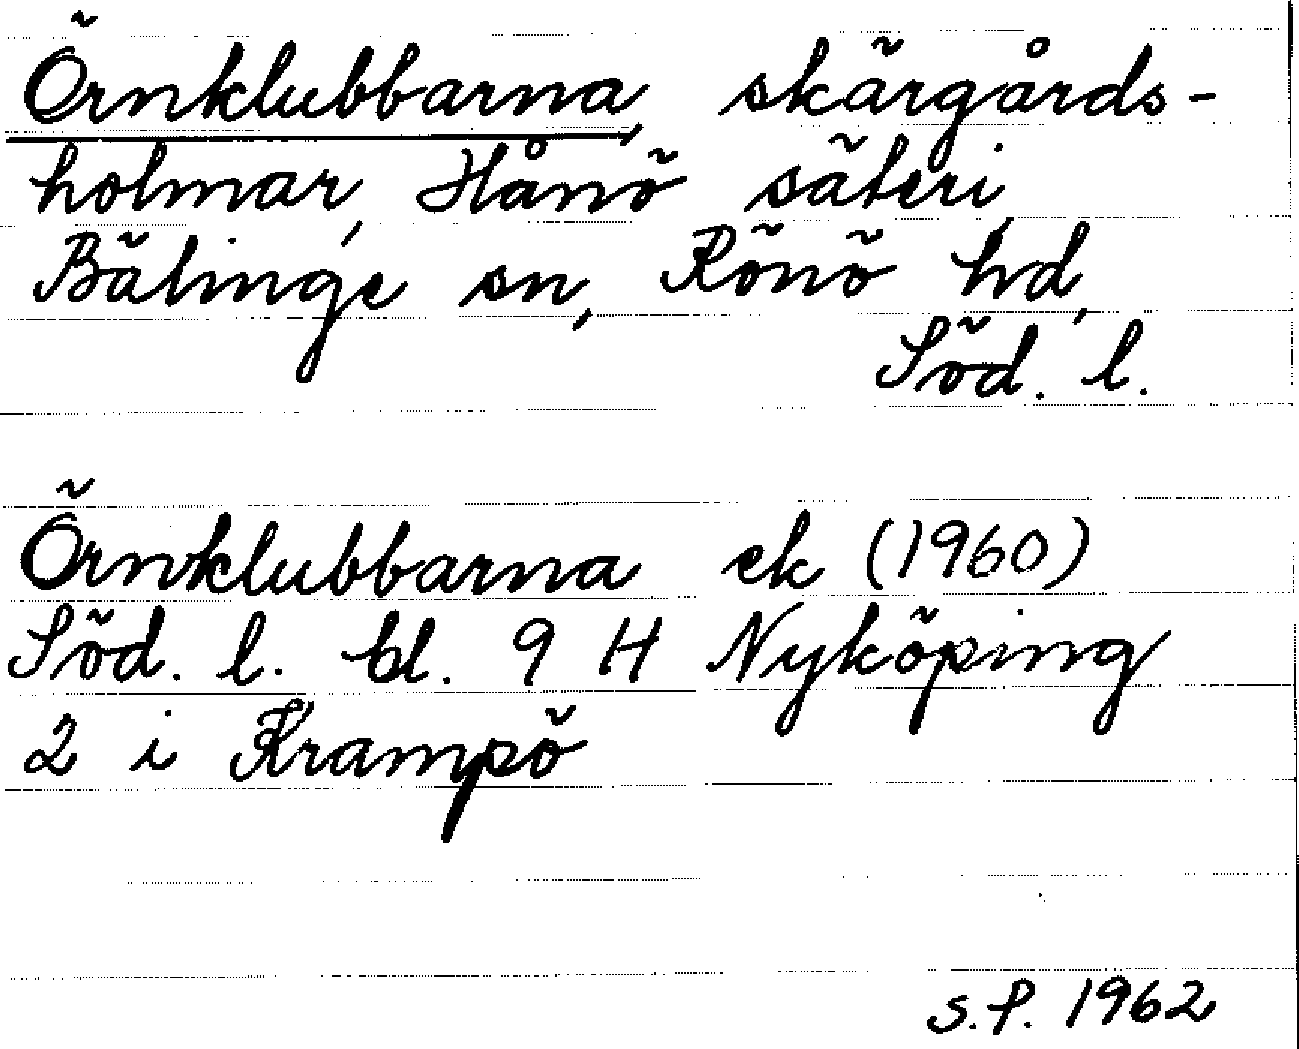 Örnklubbarna, skärgårds-
holmar, Hånö säteri,
Bälinge sn, Rönö hd,
Söd. l.
Örnklubbarna ek (1960)
Söd. l. bl. 9 H Nyköping
2 i Krampö
S.P. 1962